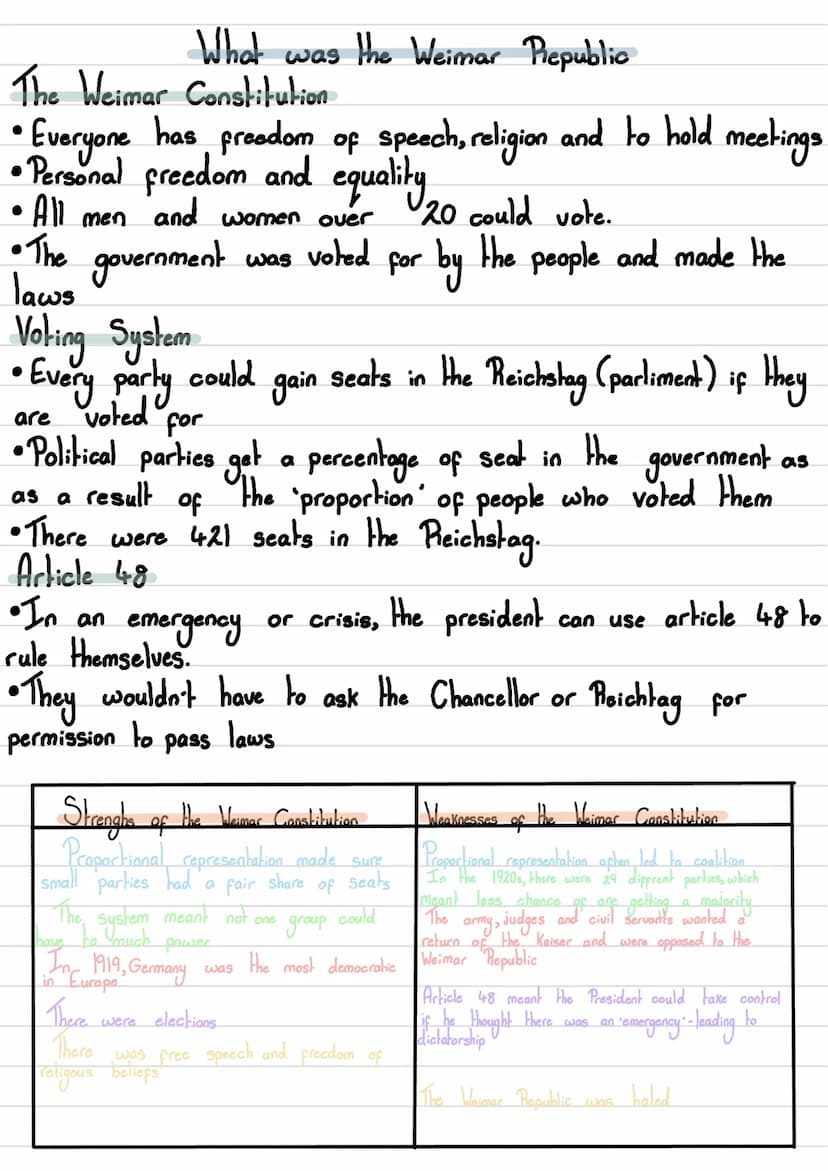 What was the Weimar Republic
The Weimar Constitution
• Everyone has freedom of speech, religion and to hold meetings
• Personal freedom and equality
• All men and women over 20 could vote.
• The government was voted for by the people and made the
laws
Voting System
• Every party could gain seats in the Reichstag (parliment) if they
are voted for
• Political parties get a percentage of seat in the government as
as a result of the 'proportion' of people who voted them
• There were 421 seats in the Reichstag.
Article 48
• In an emergency or crisis, the president can use article 48 to
rule themselves.
• They wouldn't have to ask the Chancellor or Reichtag for
permission to pass laws
Strenghs of the Weimar Constitution
Proportional representation made sure
small parties had a fair share of seats
The system meant not one group could
have to much power
In 1919, Germany was the most democratic
in Europe
There were elections
There was free speech and freedom of
religous beliefs
Weaknesses of the Weimar Constitution
Proportional representation often led to coalition
In the 1920s, there were 29 diffrent parties, which
meant less chance of one getting a majority
The army, judges and civil servants wanted a
return of the Kaiser and were opposed to the
Weimar Republic
Article 48 meant the President could take control
if he thought there was an 'emergency' - leading to
dictatorship
The Weimar Republic was hated